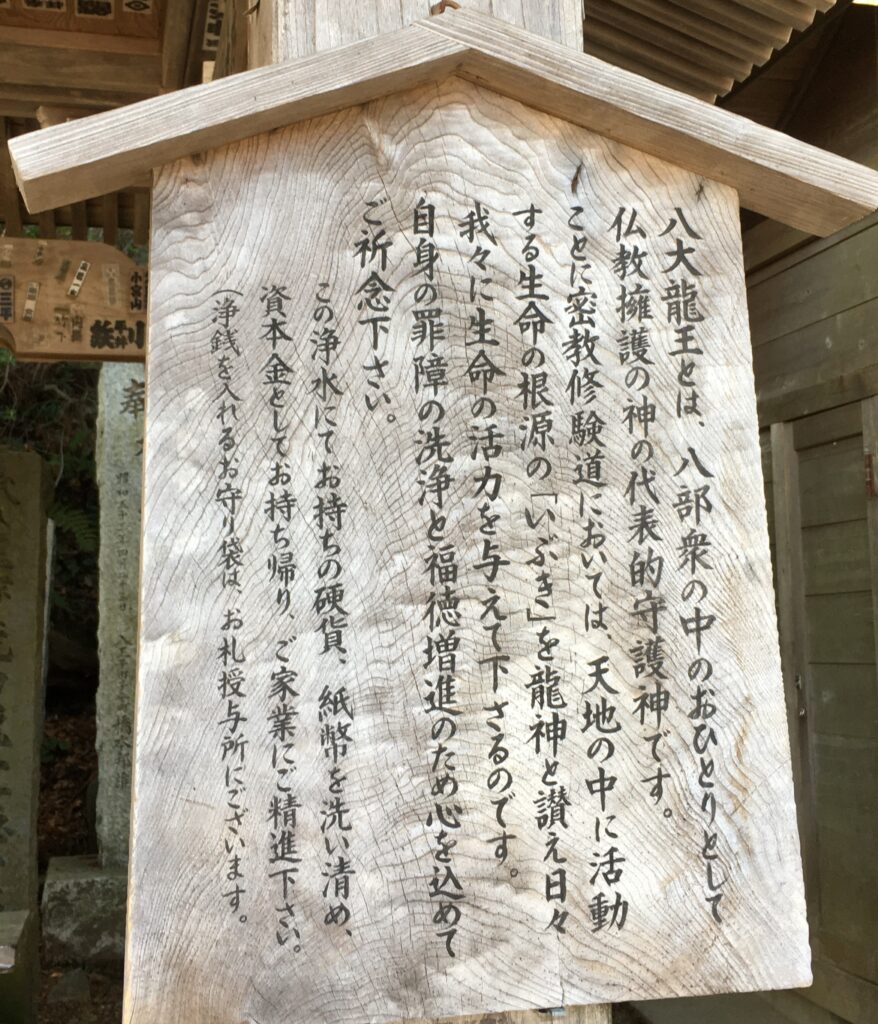 八大龍王とは、八部衆の中のおひとりとして
仏教擁護の神の代表的守護神です。
ことに密教修験道においては、天地の中に活動
する生命の根源の「いぶき」を龍神と讃え日々
我々に生命の活力を与えて下さるのです。
自身の罪障の洗浄と福徳増進のため心を込めて
ご祈念下さい。
この浄水にてお持ちの硬貨、紙幣を洗い清め、
資本金としてお持ち帰り、ご家業にご精進下さい。
（浄銭を入れるお守り袋は、お札授与所にございます。
奉